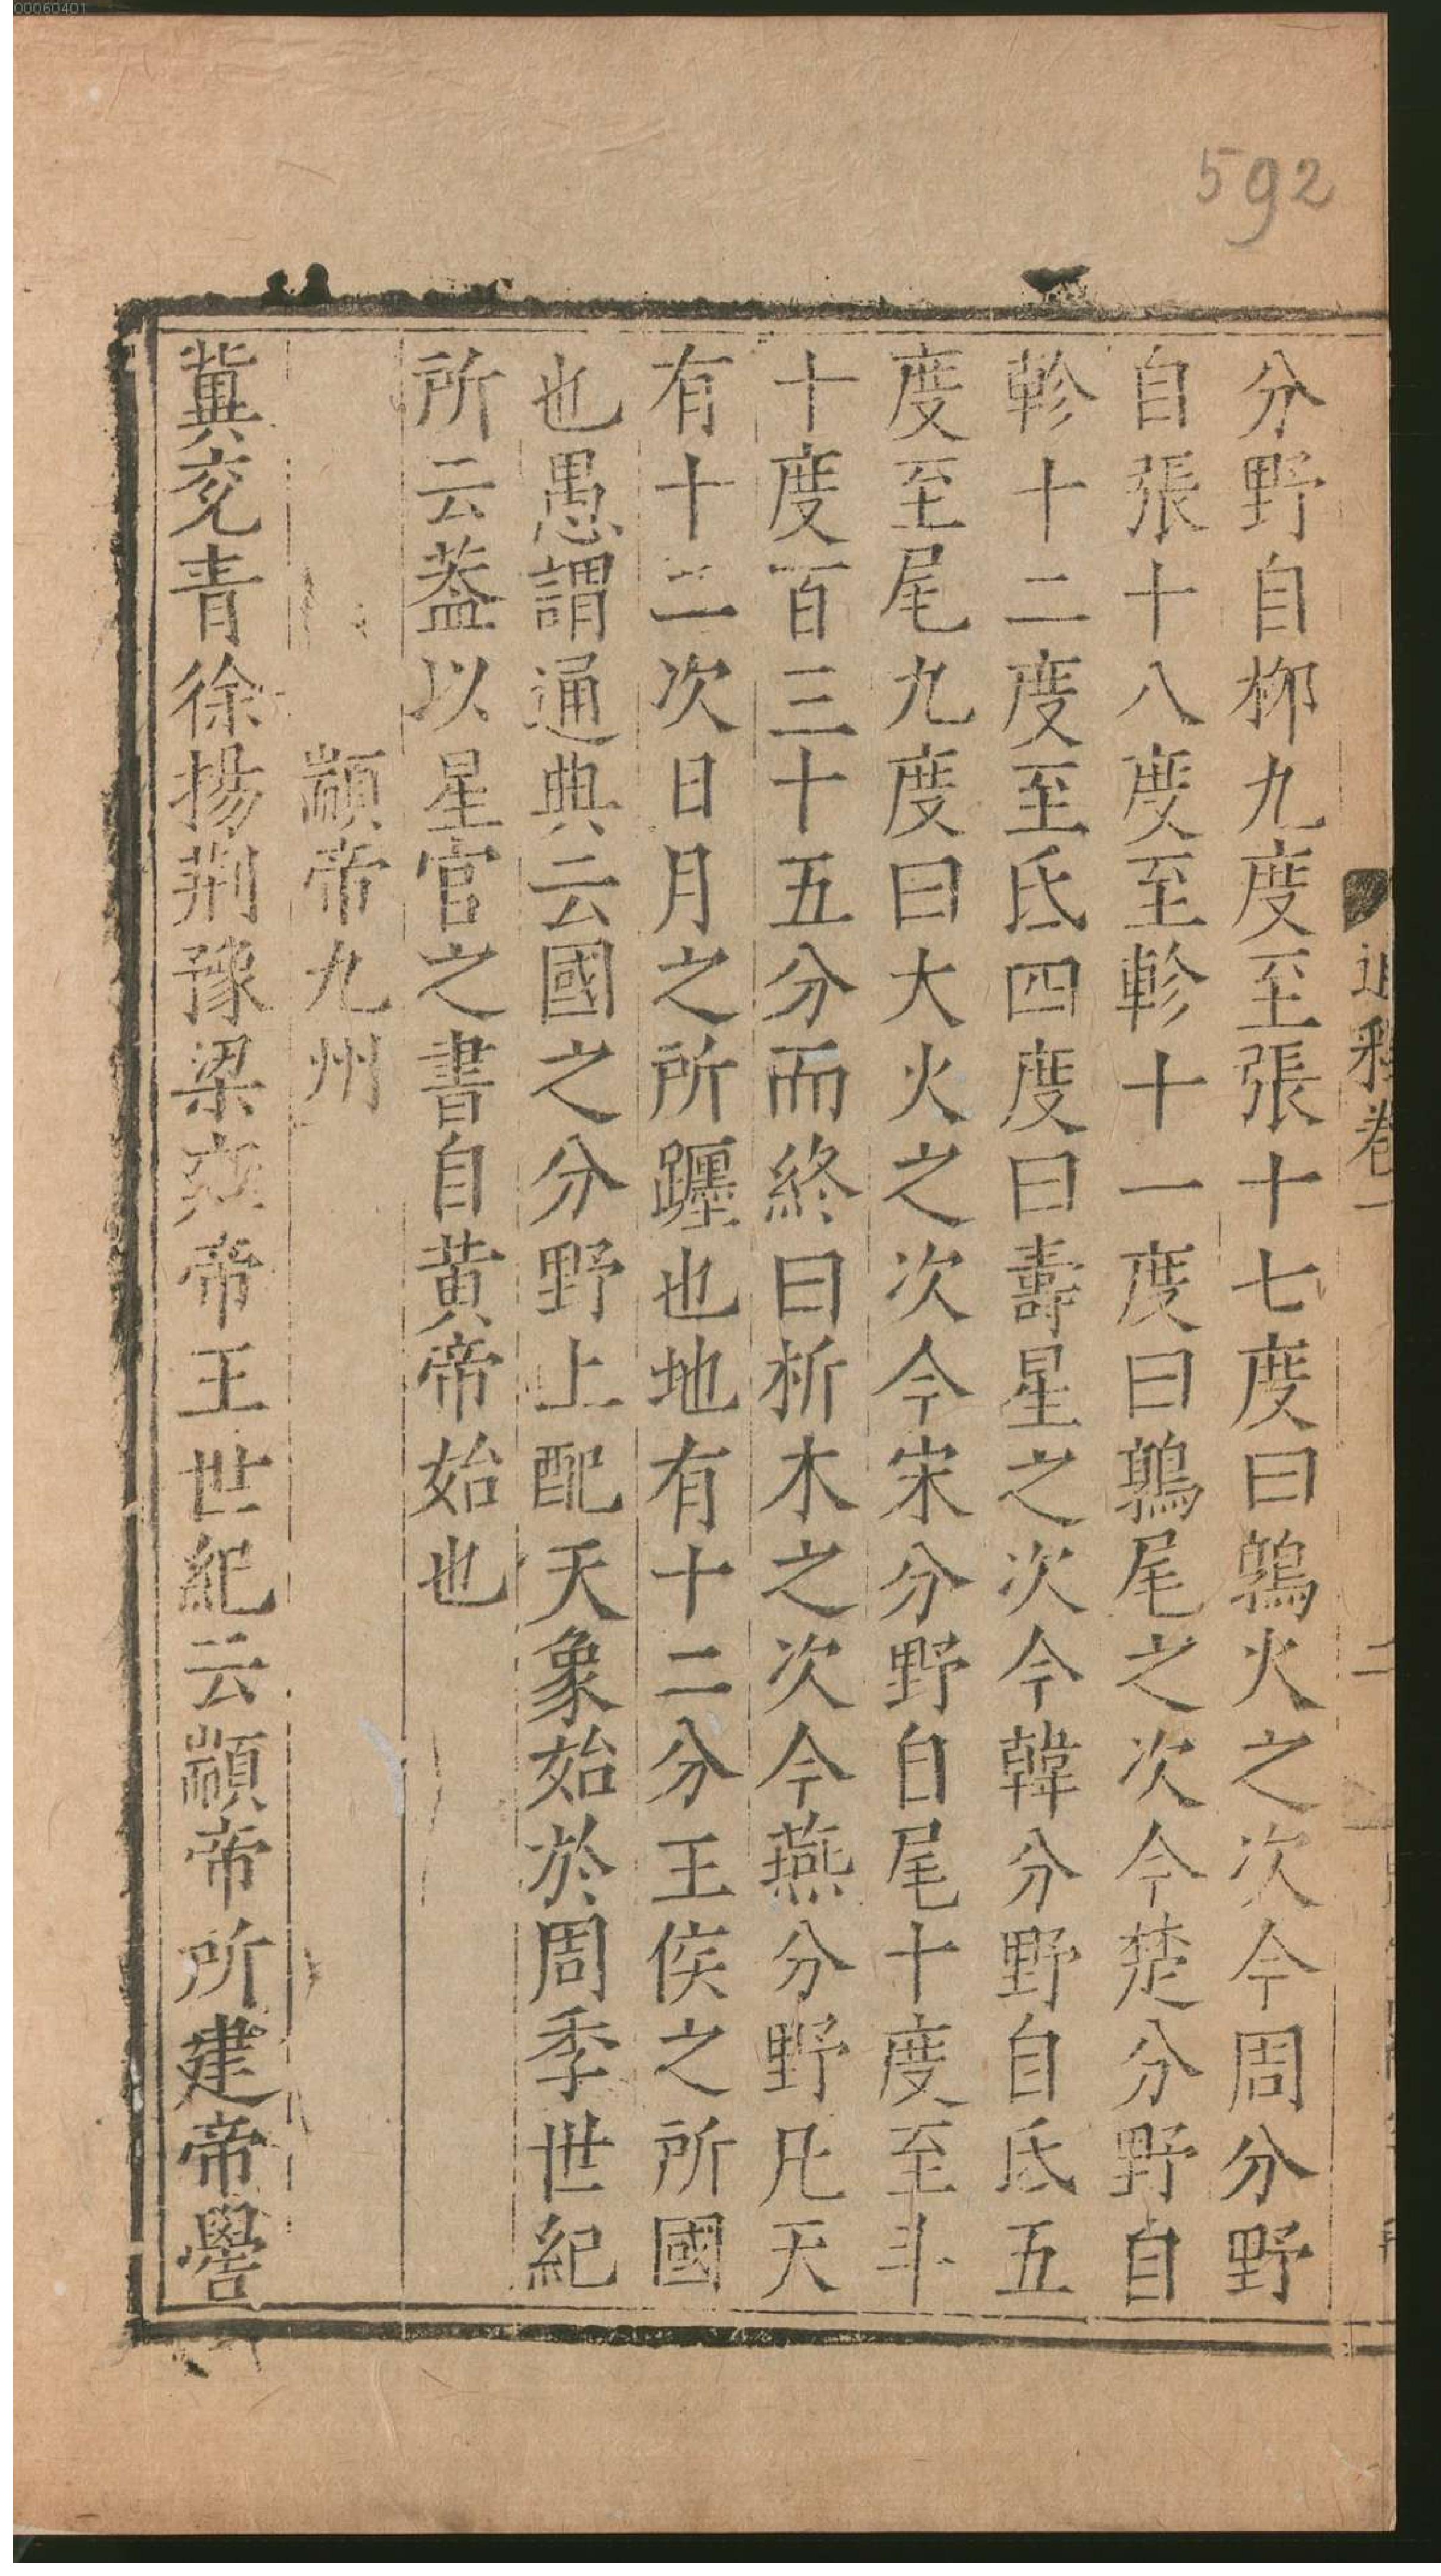 00060401
592
分野自柳九度至張十七度曰鶉火之次今周分野
自張十八度至軫十一度曰鶉尾之次今楚分野自
軫十二度至氐四度曰壽星之次今韓分野自氐五
度至尾九度曰大火之次今宋分野自尾十度至斗
十度百三十五分而終曰析木之次今燕分野凡天
有十二次日月之所躔也地有十二分王侯之所國
也愚謂通典云國之分野上配天象始於周季世紀
所云葢以星官之書自黄帝始也
顓帝九州
冀兗青徐揚荆豫梁雍帝王世紀云顓帝所建帝嚳
通釋卷一
二